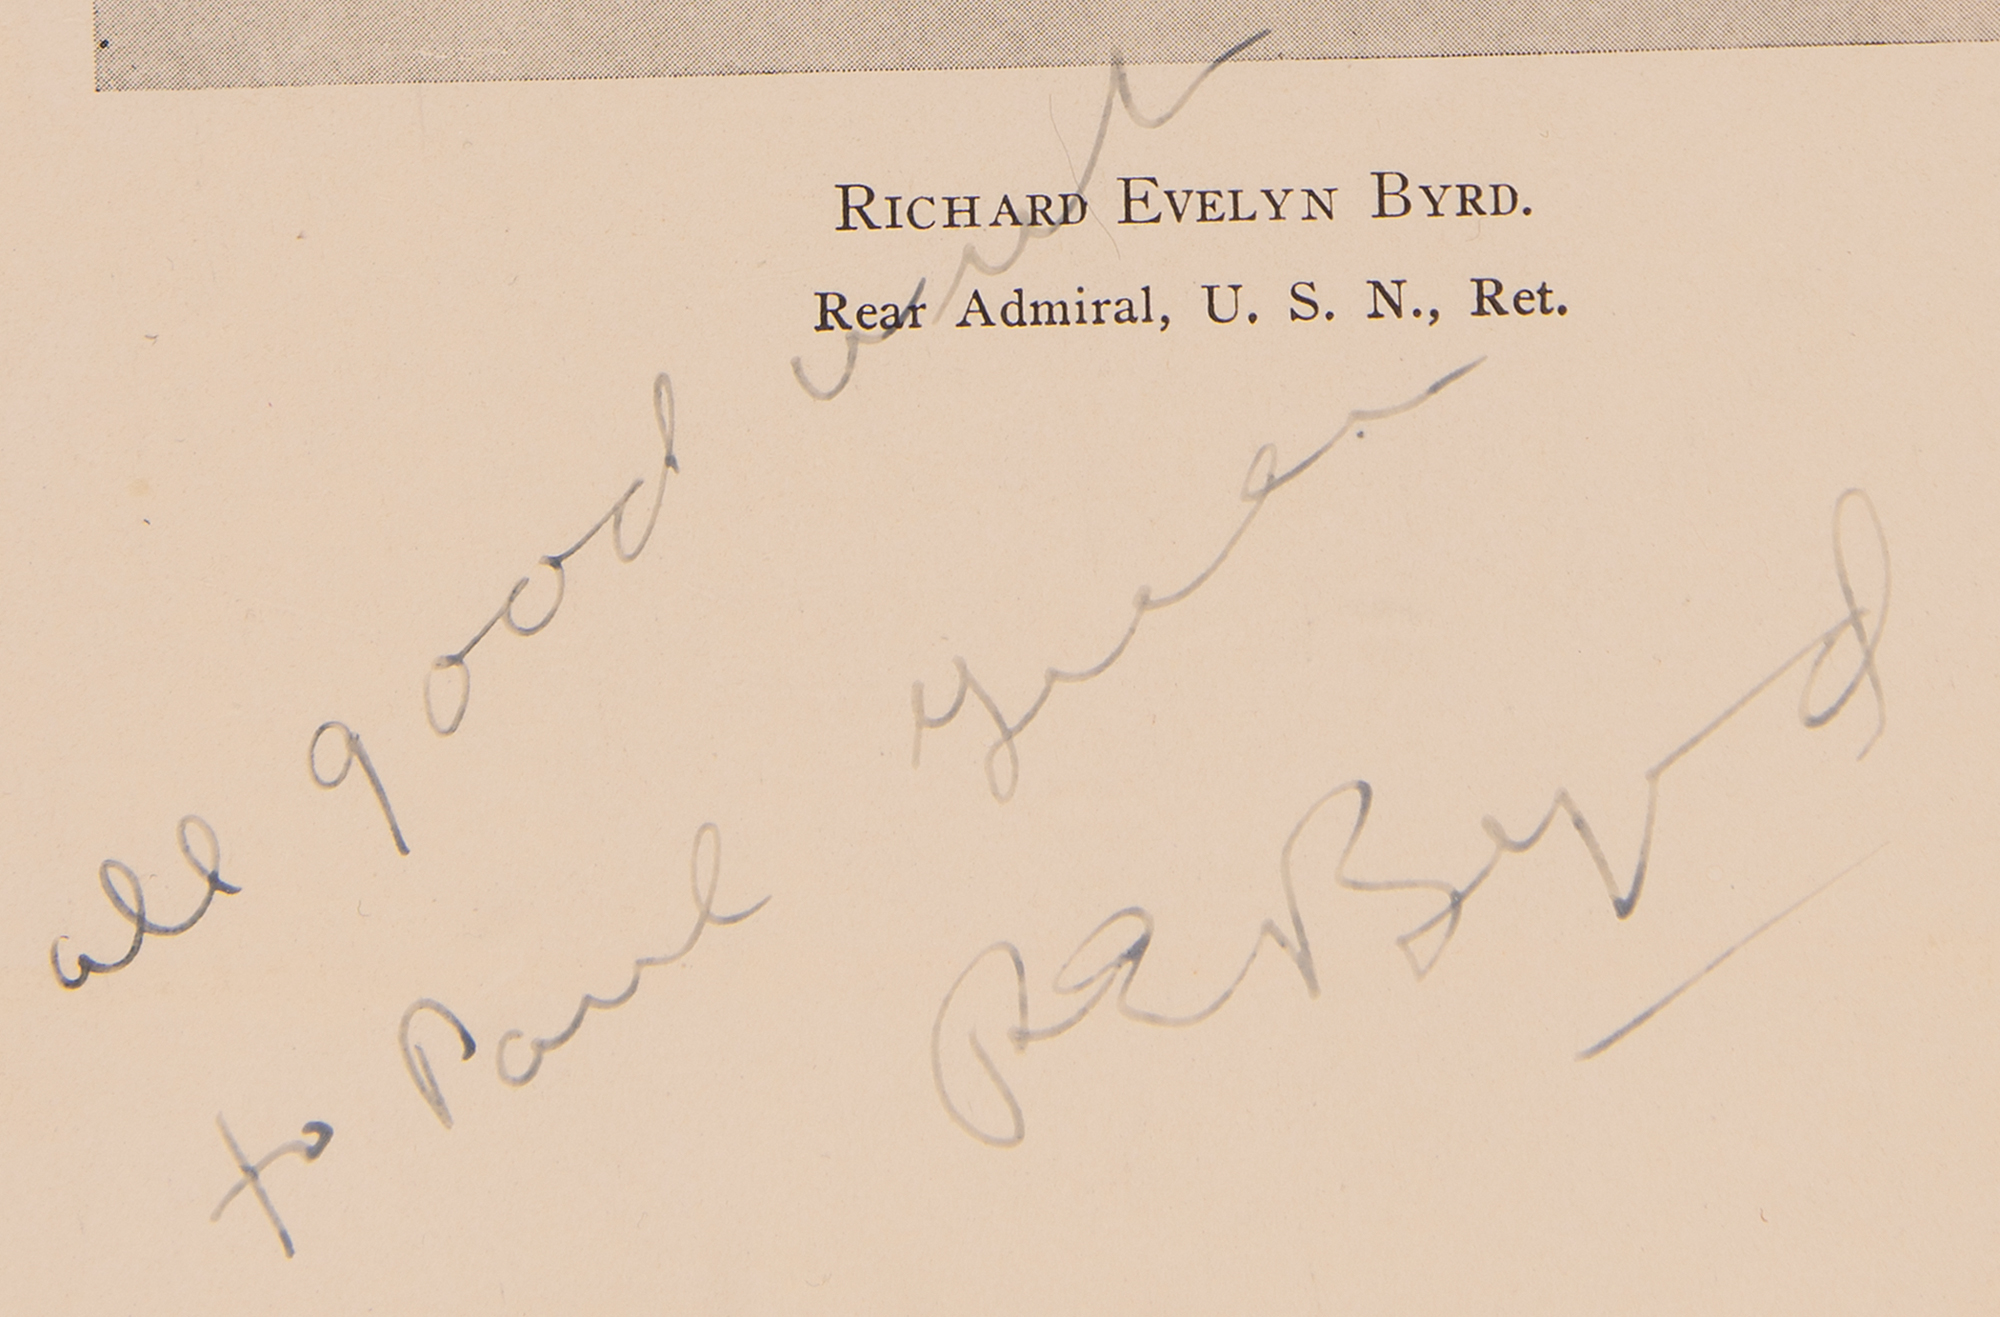 RICHARD EVELYN BYRD.
Rear Admiral, U. S. N., Ret.
all good
to Paul
RE Byrd